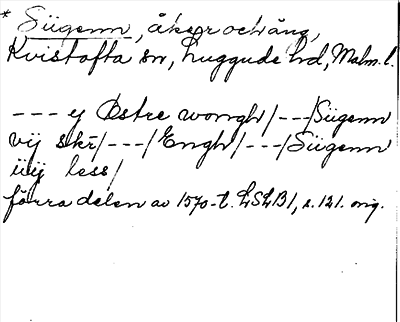 * Siigenn, åker och äng,
Kvistofta sn, Luggude hd, Malm. l.
--- ej Østre wongh/---/Siigenn
vij skr̄/---/Engh/---/Siigenn
iiij less/
förra delen av 1570-t. LSLB1, s. 121. orig.